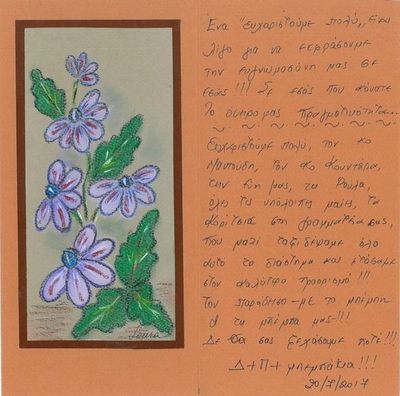 Ένα "ευχαριστούμε πολύ", είναι
λίγο για να εκφράσουμε
την ευγνωμοσύνη μας σε
εσάς!!! Σε εσάς που κάνατε
το όνειρο μας πραγματικότητα...
Ευχαριστούμε πολύ, τον κο
Μαντούδη, τον κο Κουντέρα,
την μας, τη Ρούλα,
όλες τις υπόλοιπες μαίες, τα
κορίτσια στη γραμματεία σας,
που μαζί ταξιδέψαμε όλο
αυτό το διάστημα και φτάσαμε
στον καλύτερο προορισμό!!!
Τον παράδεισο - με το μπέμπη
& τη μπέμπα μας!!!
Δε θα σας ξεχάσουμε ποτέ!!!
Δ+Π+ μπεμπάκια!!!
20/7/2017
Loura